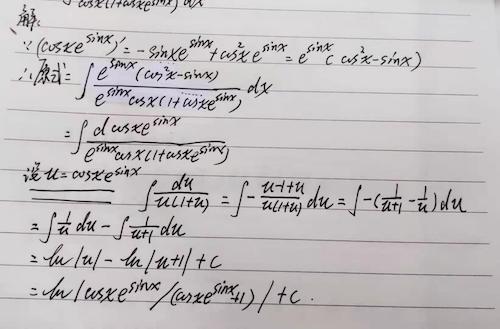 cosx(1+cosxe^{sinx}) dx
解:
∵(cosxe^{sinx})'=-sinxe^{sinx}+cos²xe^{sinx}=e^{sinx}(cos²x-sinx)
∴原式=∫\frac{e^{sinx}(cos²x-sinx)}{e^{sinx}cosx(1+cosxe^{sinx})}dx
=∫\frac{d cosxe^{sinx}}{e^{sinx}cosx(1+cosxe^{sinx})}
设u=cosxe^{sinx} ∫\frac{du}{u(1+u)}=∫-\frac{u-1+u}{u(1+u)}du=∫-(\frac{1}{u+1}-\frac{1}{u})du
=∫\frac{1}{u}du-∫\frac{1}{u+1}du
=ln|u|-ln|u+1|+c
=ln|cosxe^{sinx}/(cosxe^{sinx}+1)|+c.